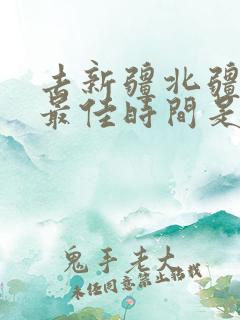 去新疆北疆
最佳時間是
鬼手老大
未经同意禁止搬我